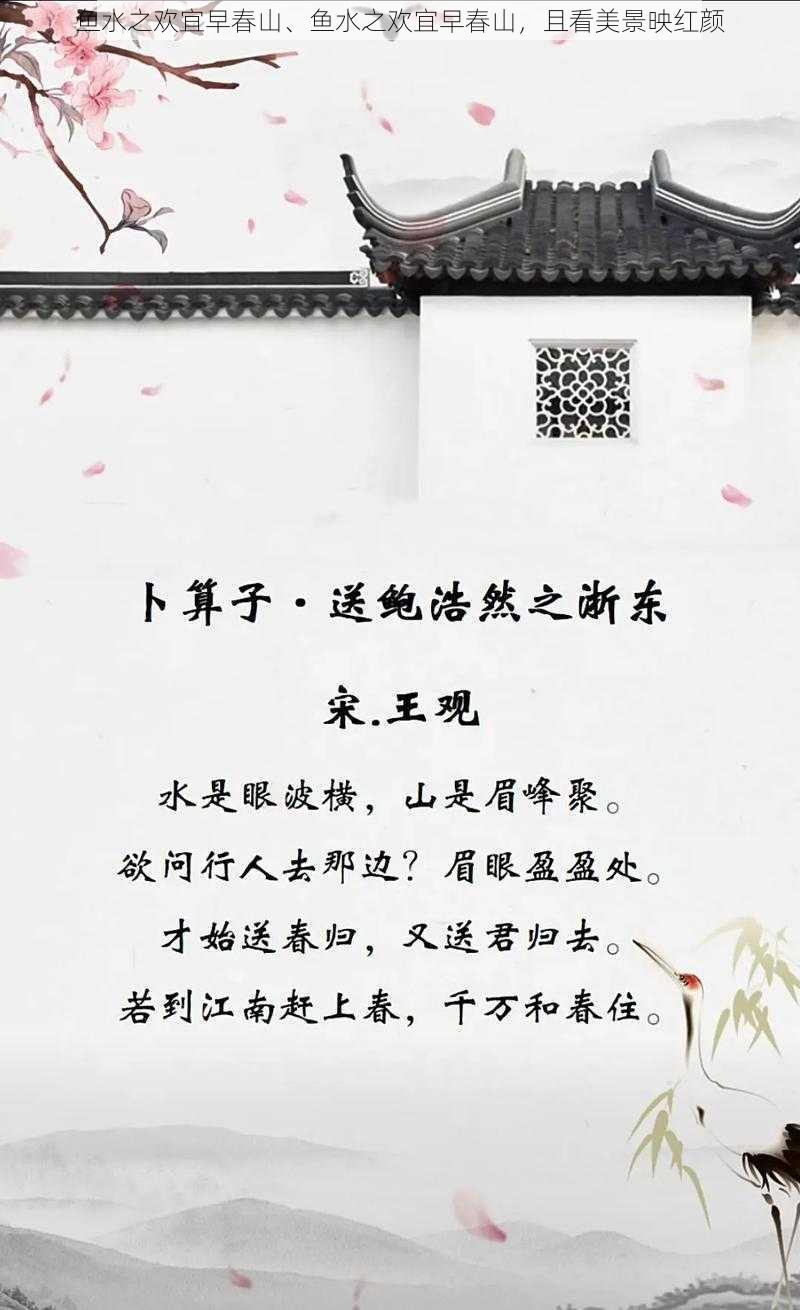 鱼水之欢宜早春山、鱼水之欢宜早春山，且看美景映红颜
卜算子·送鲍浩然之浙东
宋.王观
水是眼波横，山是眉峰聚。
欲问行人去那边？眉眼盈盈处。
才始送春归，又送君归去。
若到江南赶上春，千万和春住。